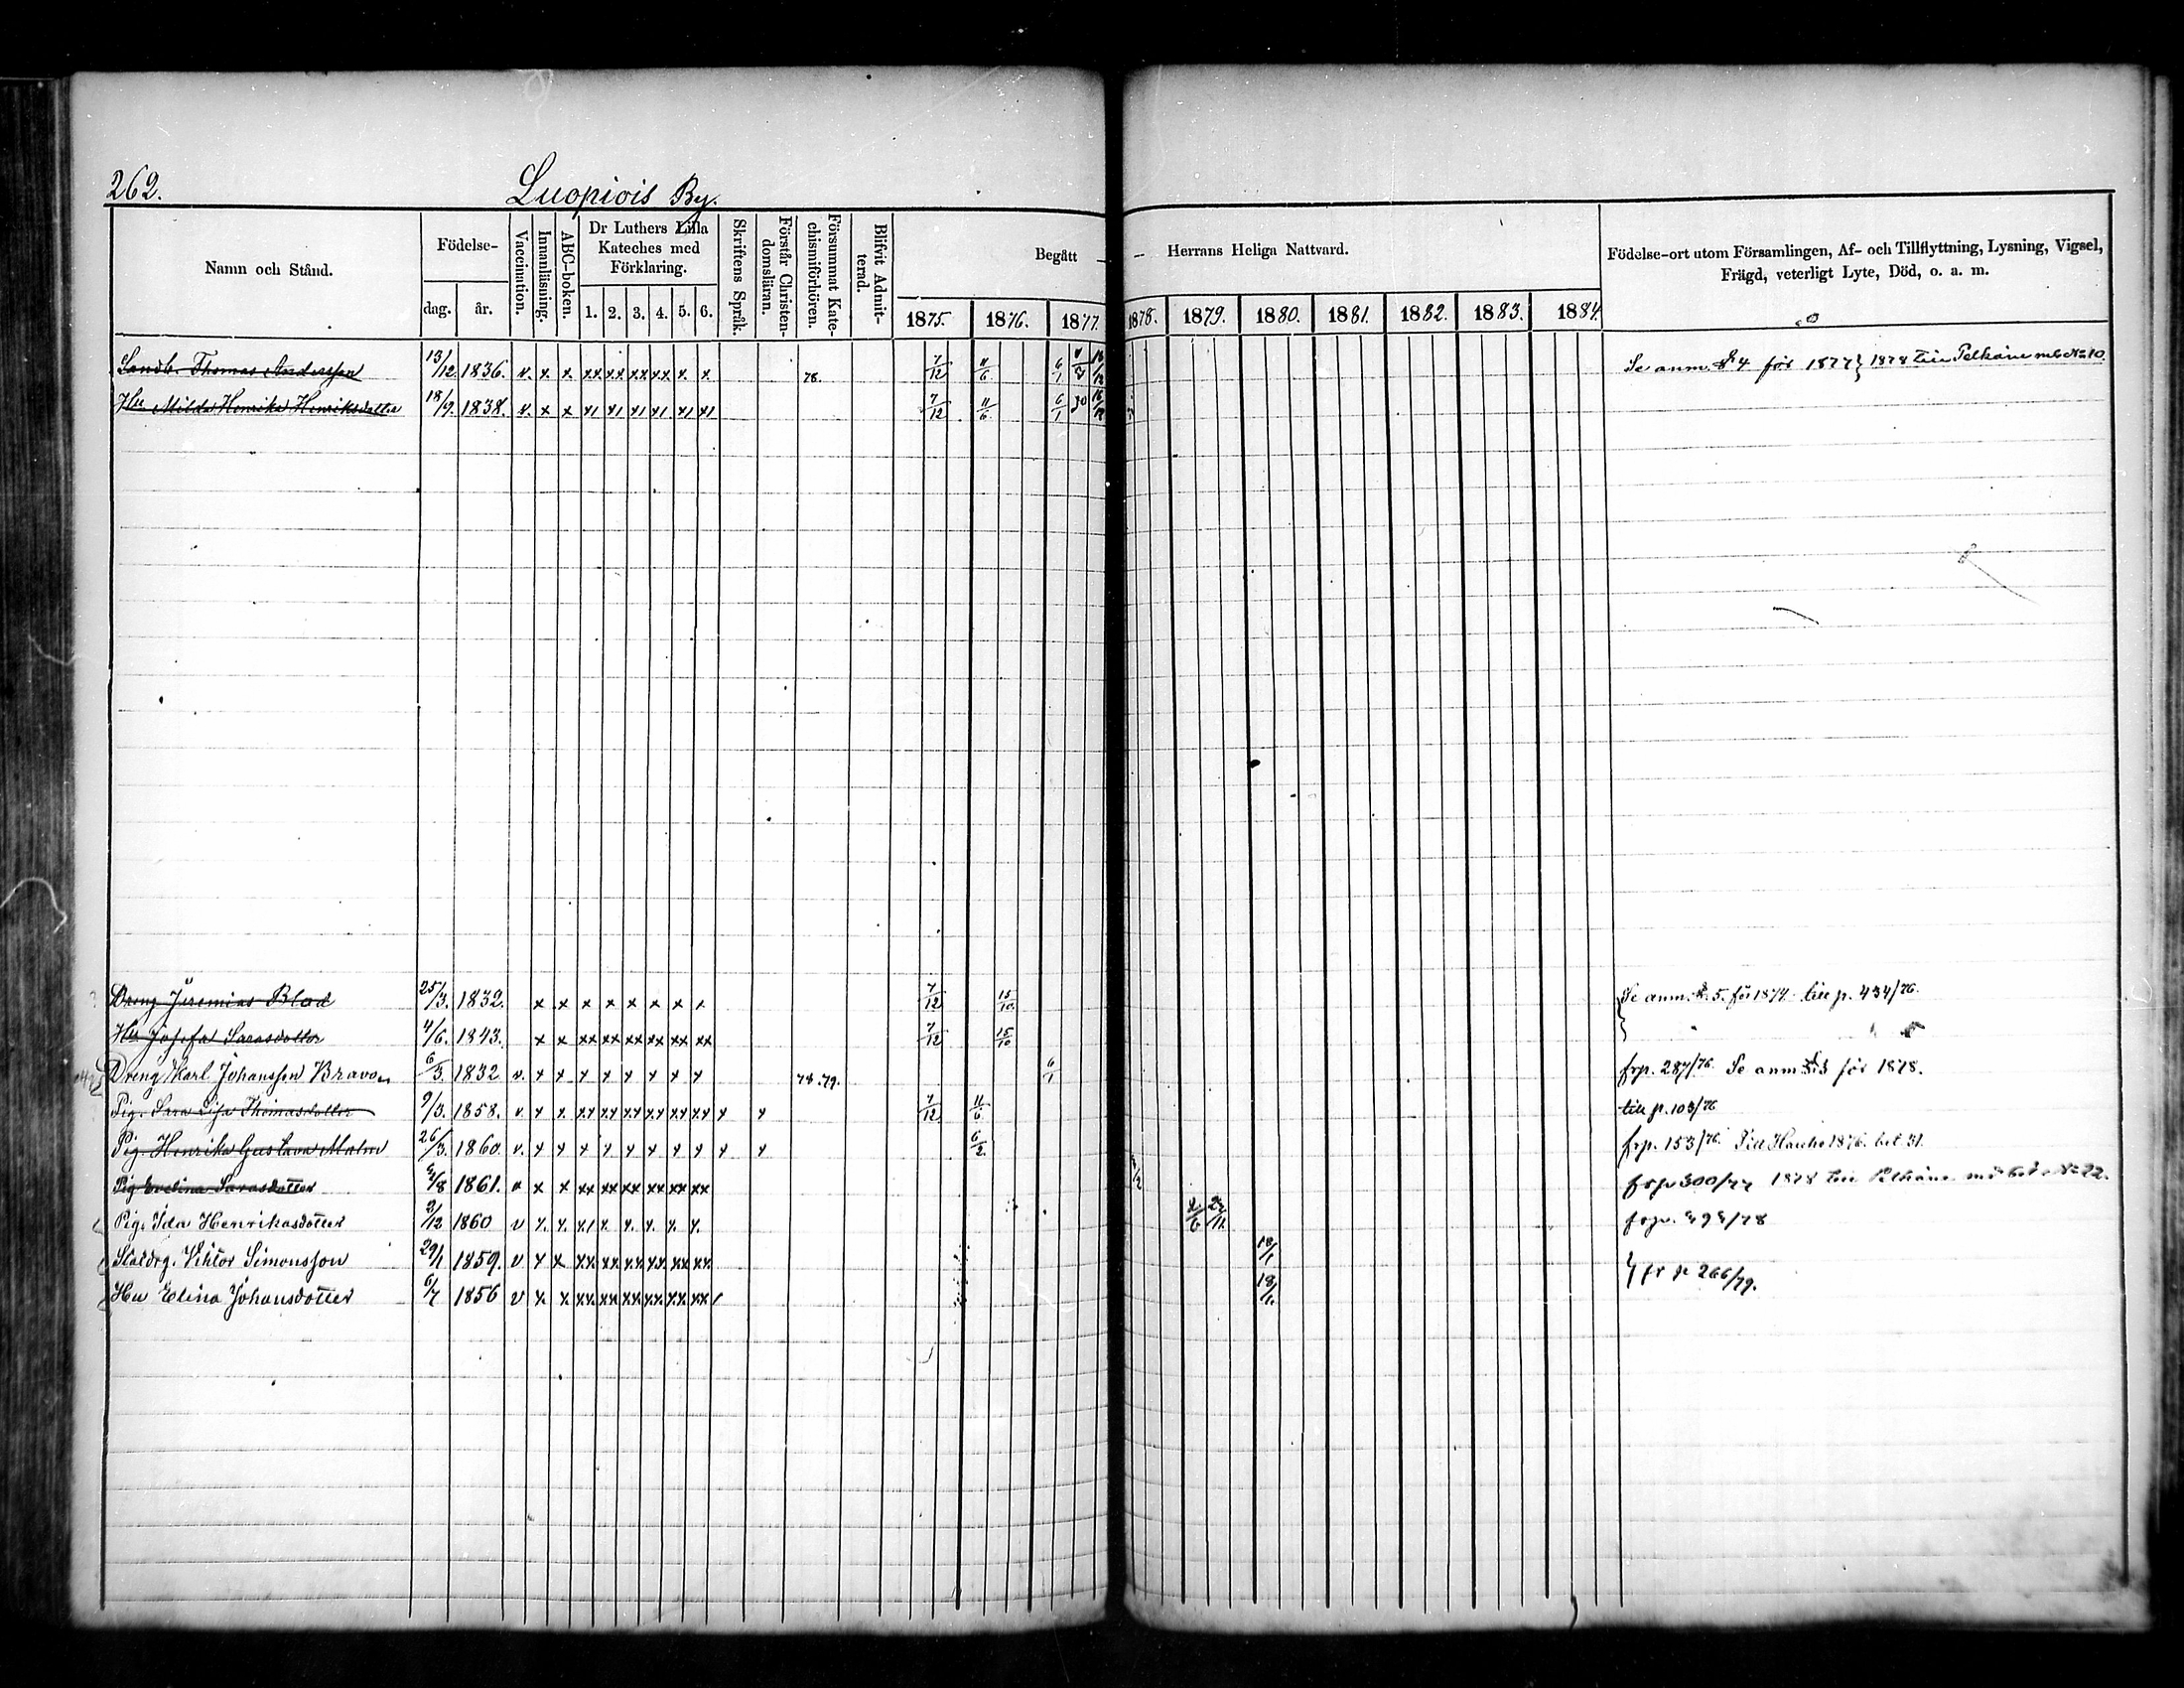 262.
Luopiois By.
Namn och Stånd.
Födelse-
dag. år.
Vaccination.
Innanläsning.
ABC-boken.
Dr Luthers Lilla Kateches med Förklaring.
1. 2. 3. 4. 5. 6.
Skriftens Språk.
Förstår Christendomsläran.
Försummat Katechismiförhören.
Blifvit Admitterad.
Begått Herrans Heliga Nattvard.
1875. 1876. 1877. 1878. 1879. 1880. 1881. 1882. 1883. 1884.
Födelse-ort utom Församlingen, Af- och Tillflyttning, Lysning, Vigsel,
Frägd, veterligt Lyte, Död, o. a. m.
Thomas Andersson 13/12 1836. v. x. x. xx xx xx xx x. x 78. 7/12 11/6 6/1 Se anm. 4 för 1877 } 1878 till Pelkäne
Hu Milda Henrika Henriksdotter 18/9. 1838. v. x x x1 x1 x1 x1 x1 x1 7/12 11/6 6/1
Dreng Jeremias Blad 25/3. 1832. x x x x x x x x. 7/12 15/10 Se anm. 5. för 1874 till p. 434/76.
Hu Josefa Sarasdotter 4/6. 1843. x x xx xx xx xx xx xx 7/12 15/10
Dreng Karl Johansson Bravo 6/3. 1832 v. x x x x x x x x 78.79. 6/1 frp. 287/76. Se anm för 1878.
Pig. Sara Lisa Thomasdotter 9/3. 1858. v. x x. xx xx xx xx xx xx x x 7/12 11/6 till p. 103/76
Pig. Henrika Gustava Malm 26/3. 1860. v. x x x x x x x x x x 6/2 frp. 153/76. Till Hauho 1876. bet 31.
Pig Evelina Sarasdotter /8 1861. v x x xx xx xx xx xx xx frp 300/77 1878 till Pelkäne
Pig. Ida Henrikasdotter 2/12 1860 v x. x. x1 x. x. x. x. x. frp. /78
Staldrg. Viktor Simonsson 29/1 1859. v x x xx xx xx xx xx xx 18/1
Hu Elina Johansdotter 6/7 1856 v x x xx xx xx xx xx xx 18/1 } fr p 266/79.